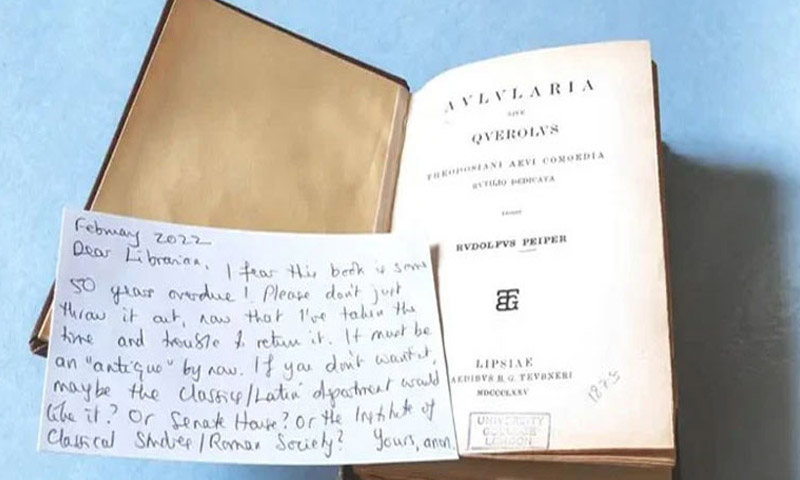 February 2022
Dear Librarian, I fear this book is some
50 years overdue! Please don't just
throw it out, now that I've taken the
time and trouble to return it. It must be
an "antique" by now. If you don't want it,
maybe the Classics/Latin department would
like it? Or Senate House? Or the Institute of
Classical Studies/Roman Society? Yours, anon.
AVLVLARIA
SIVE
QVEROLVS
THEODOSIANI AEVI COMOEDIA
RVTILIO DEDICATA
EDIDIT
RVDOLFVS PEIPER
BTG
LIPSIAE
AEDIBVS B. G. TEVBNERI
MDCCCLXXV
1875
UNIVERSITY
COLLEGE
LONDON